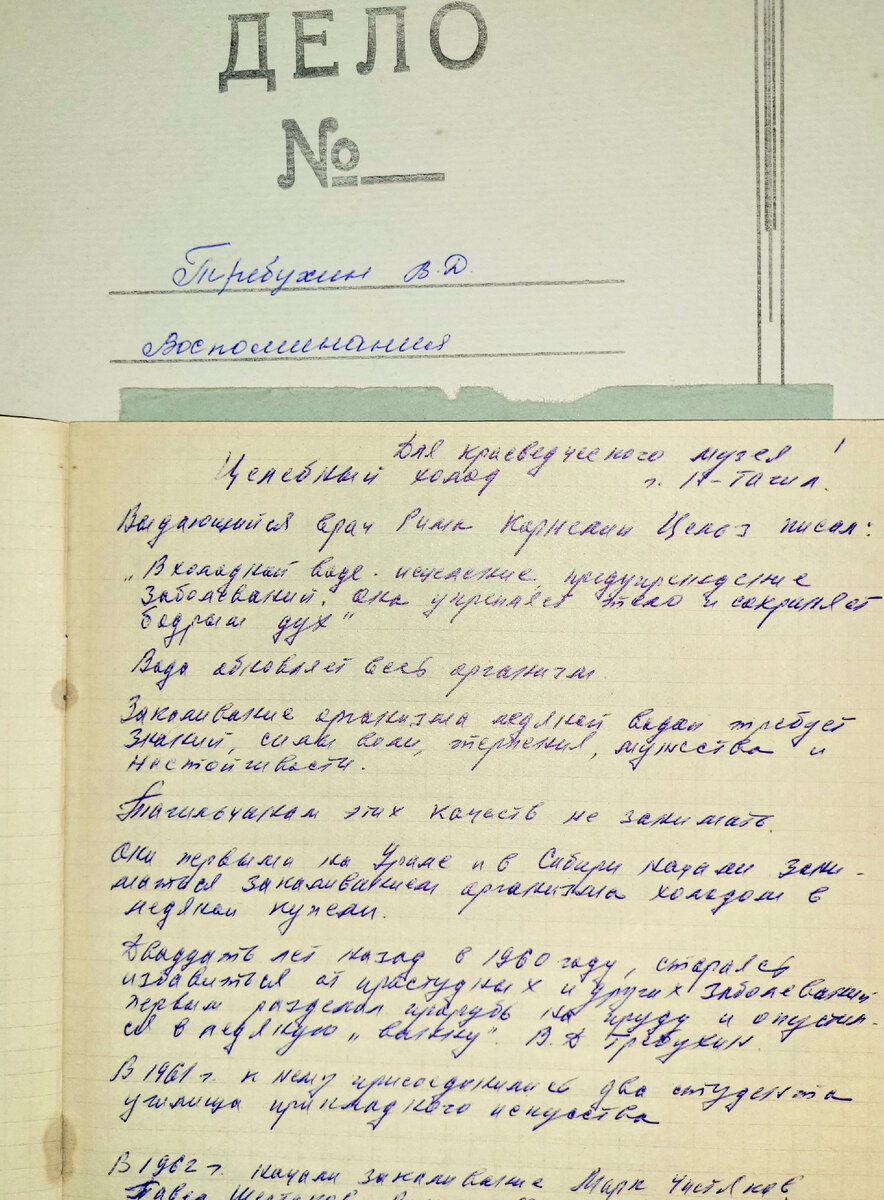 ДЕЛО
№
Требухин В.Д.
Воспоминания
Для краеведческого музея 1
Целебный холод г. Н-Тагил.
Выдающийся врач Рима Корнелий Цельз писал:
„В холодной воде - исцеление, предупреждение
заболеваний. Она укрепляет тело и сохраняет
бодрым дух"
Вода обновляет весь организм.
Закаливание организма ледяной водой требует
знаний, силы воли, терпения, мужества и
настойчивости.
Тагильчанам этих качеств не занимать.
Они первыми на Урале и в Сибири начали зани-
маться закаливанием организма холодом в
ледяной купели.
Двадцать лет назад в 1960 году, стараясь
избавиться от простудных и других заболеваний
первым разделал прорубь на пруду и опустил-
ся в ледяную „ванну". В. Д Требухин.
В 1961 г. к нему присоединились два студента
училища прикладного искусства
В 1962 г. начали закаливание Марк Чистяков,
Павел